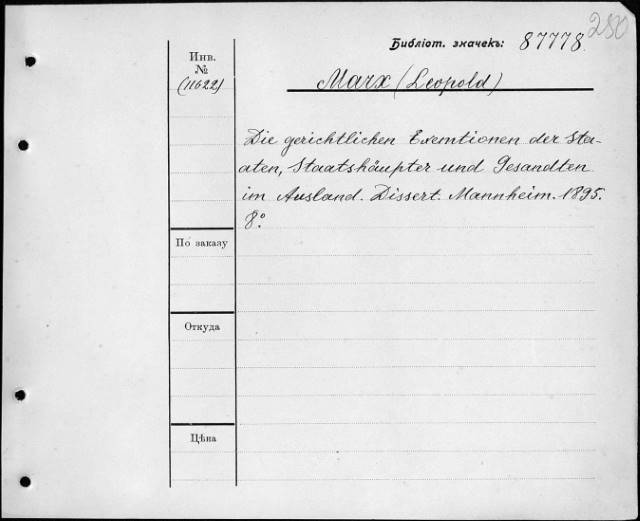 280
Библіот. значекъ: 87778.
Инв.
№
(11622)
Marx (Leopold)
Die gerichtlichen Exemtionen der Sta-
aten, Staatshäupter und Gesandten
im Ausland. Dissert. Mannheim. 1895.
8°.
По заказу
Откуда
Цѣна